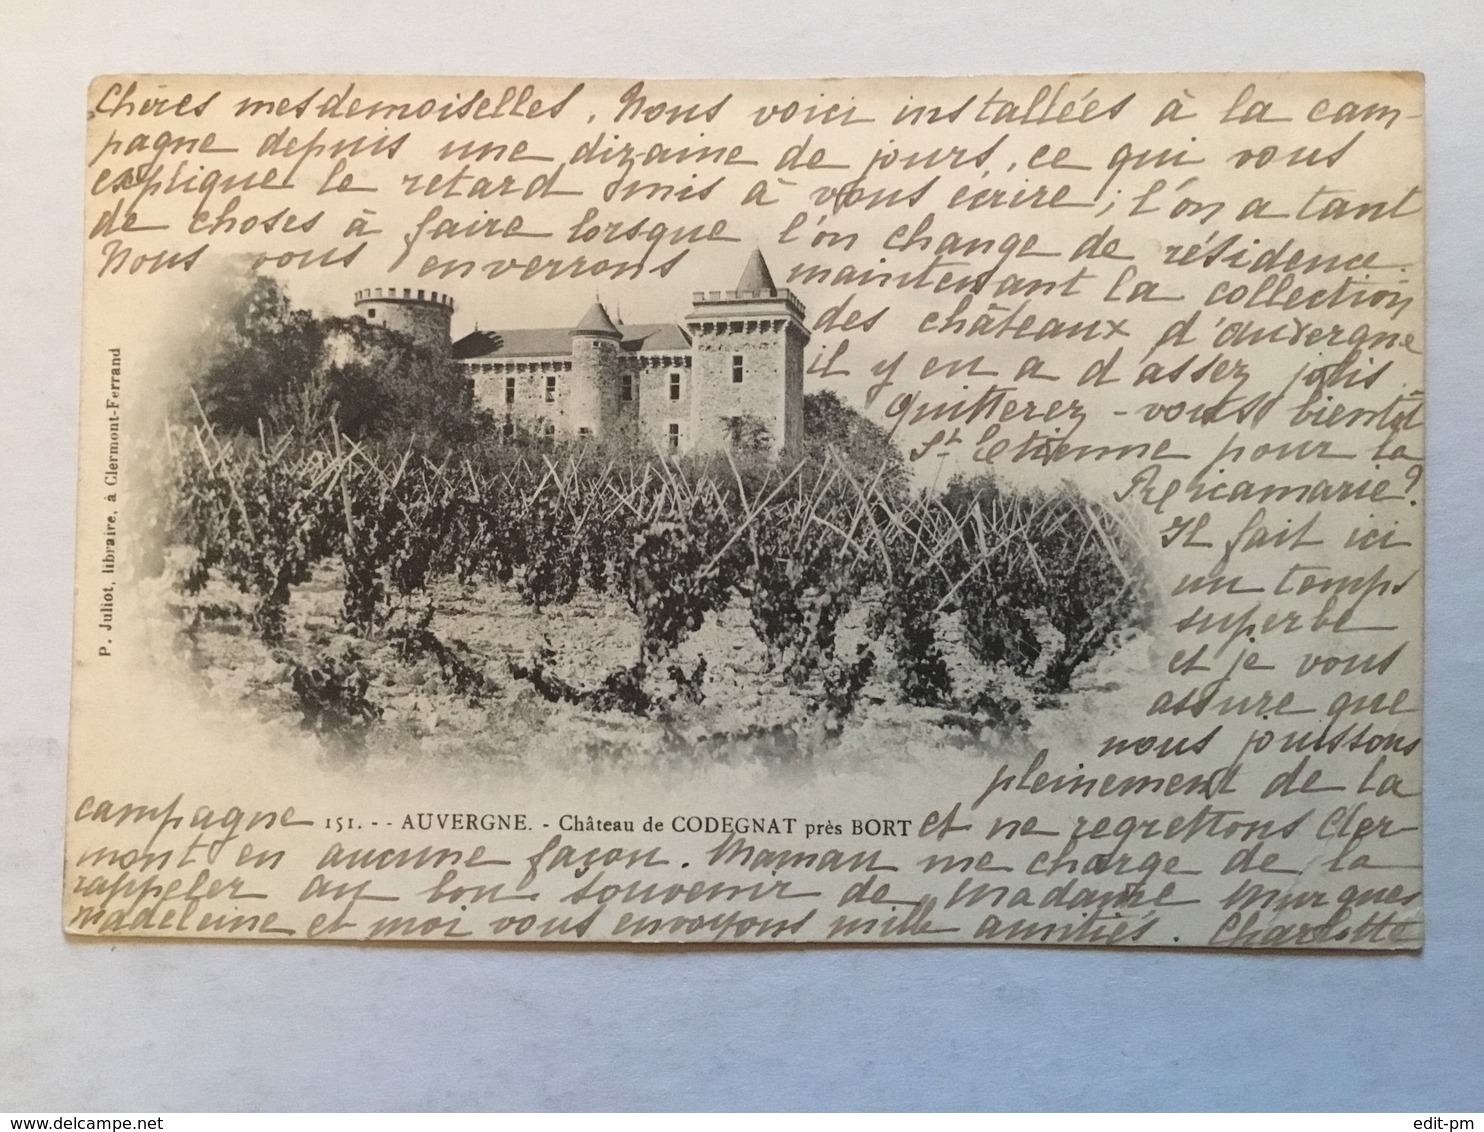 Chères mesdemoiselles, Nous voici installées à la cam-
pagne depuis une dizaine de jours, ce qui vous
explique le retard mis à vous écrire; l'on a tant
de choses à faire lorsque l'on change de résidence.
Nous vous enverrons maintenant la collection
des châteaux d'Auvergne
il y en a d'assez jolis.
Quitterez-vous bientôt
St Etienne pour la
Ricamarie?
Il fait ici
un temps
superbe
et je vous
assure que
nous jouissons
pleinement de la
campagne et ne regrettons Cler-
mont en aucune façon. Maman me charge de la
rappeler au bon souvenir de Madame Murgues
Madeleine et moi vous envoyons mille amitiés. Charlotte
151. -- AUVERGNE. - Château de CODEGNAT près BORT
P. Juliot, libraire, à Clermont-Ferrand
edit-pm
edit-pm